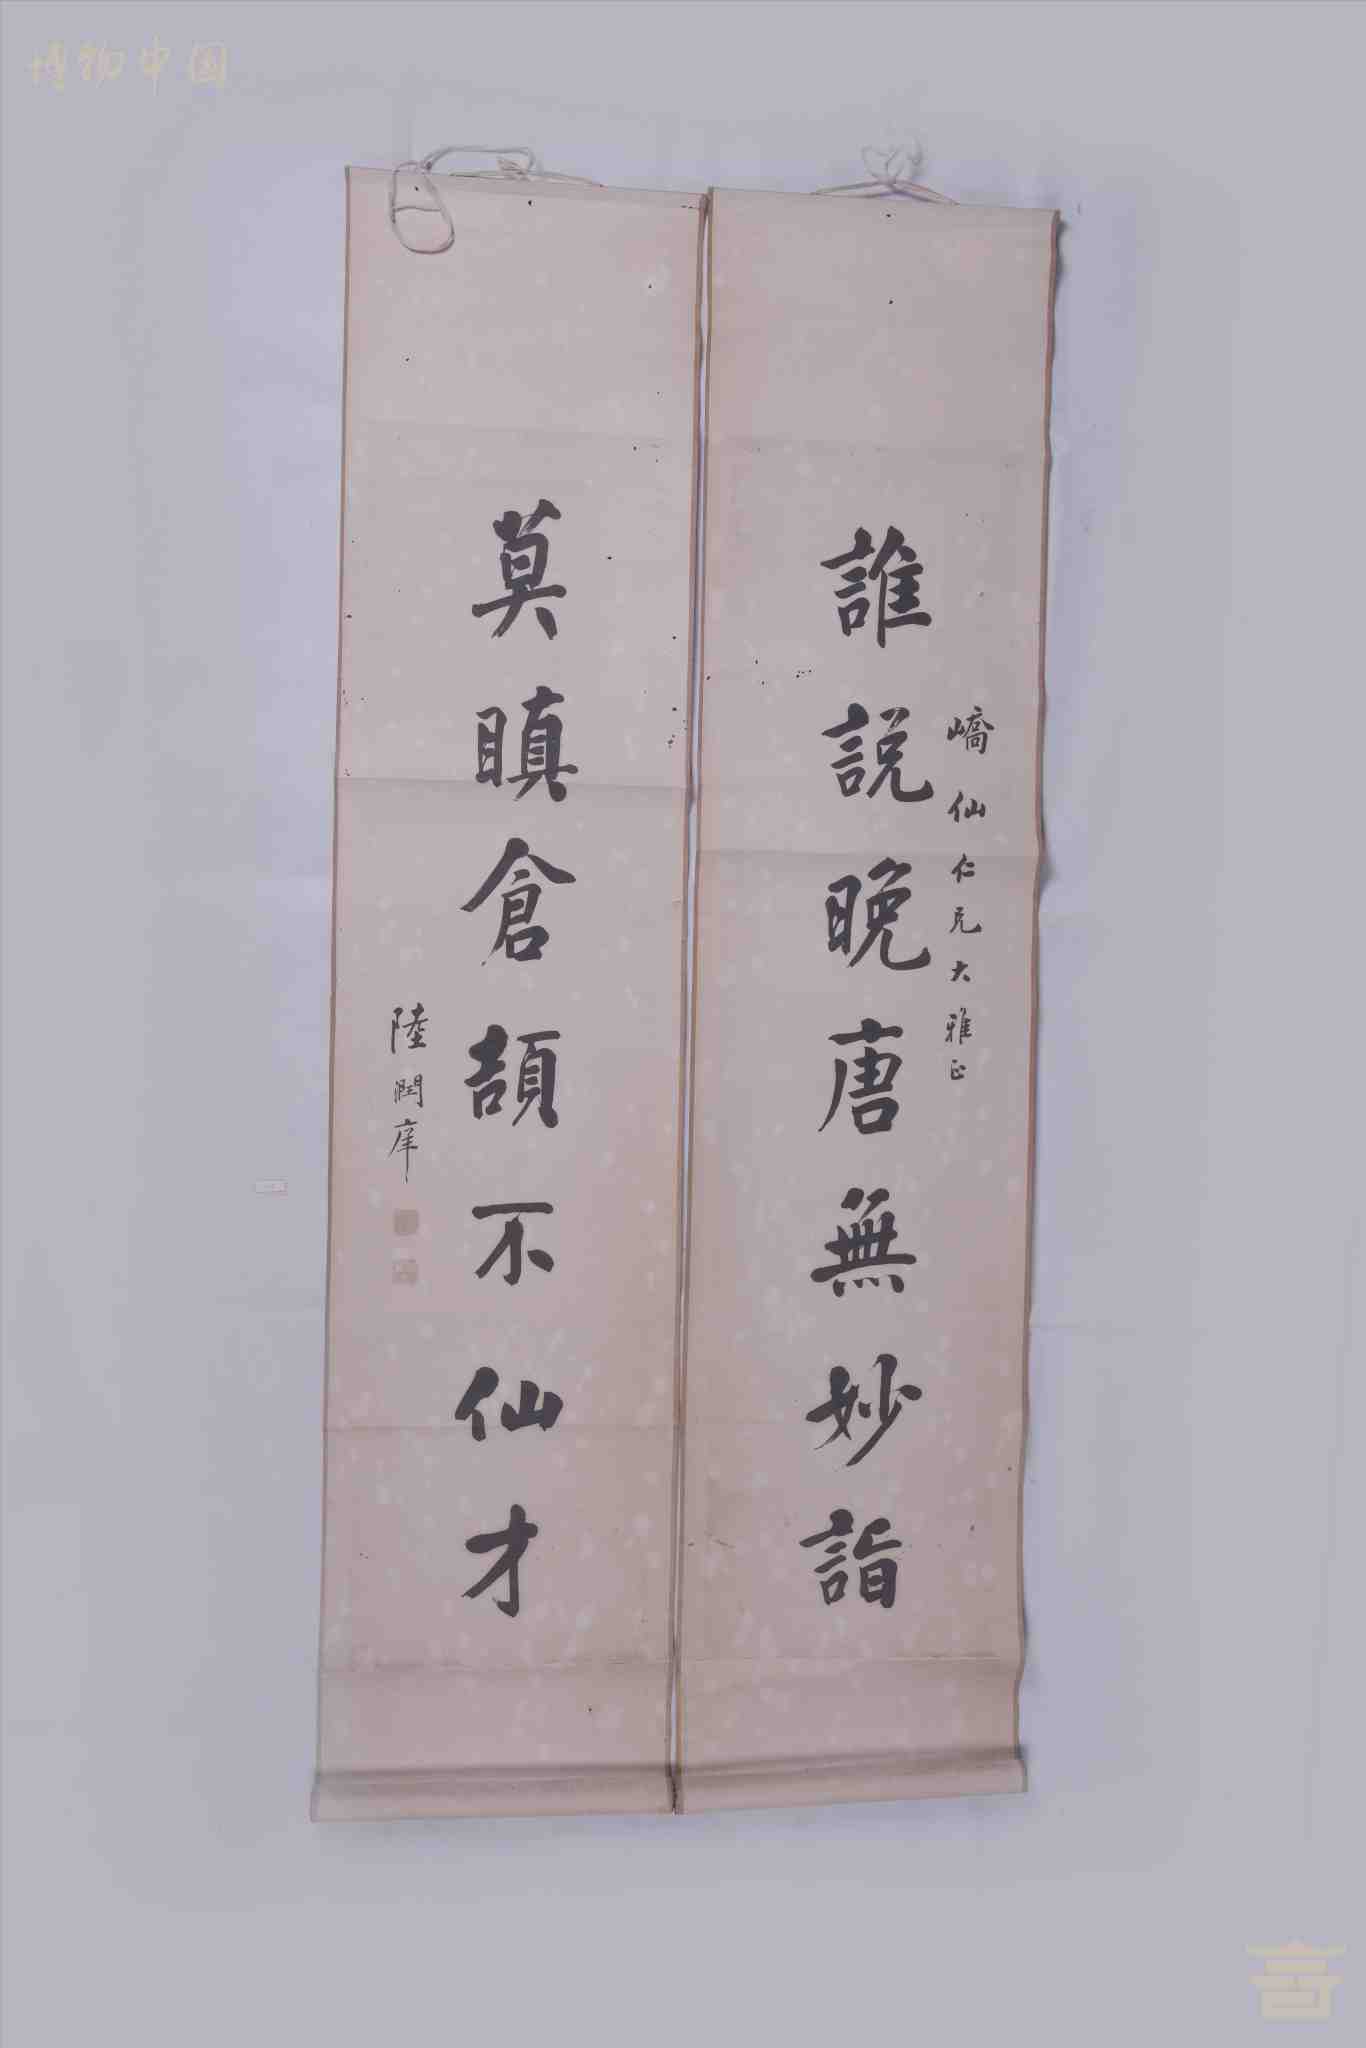 博物中国
嶠仙仁兄大雅正
誰説晚唐無妙詣
莫瞋倉頡不仙才
陸潤庠